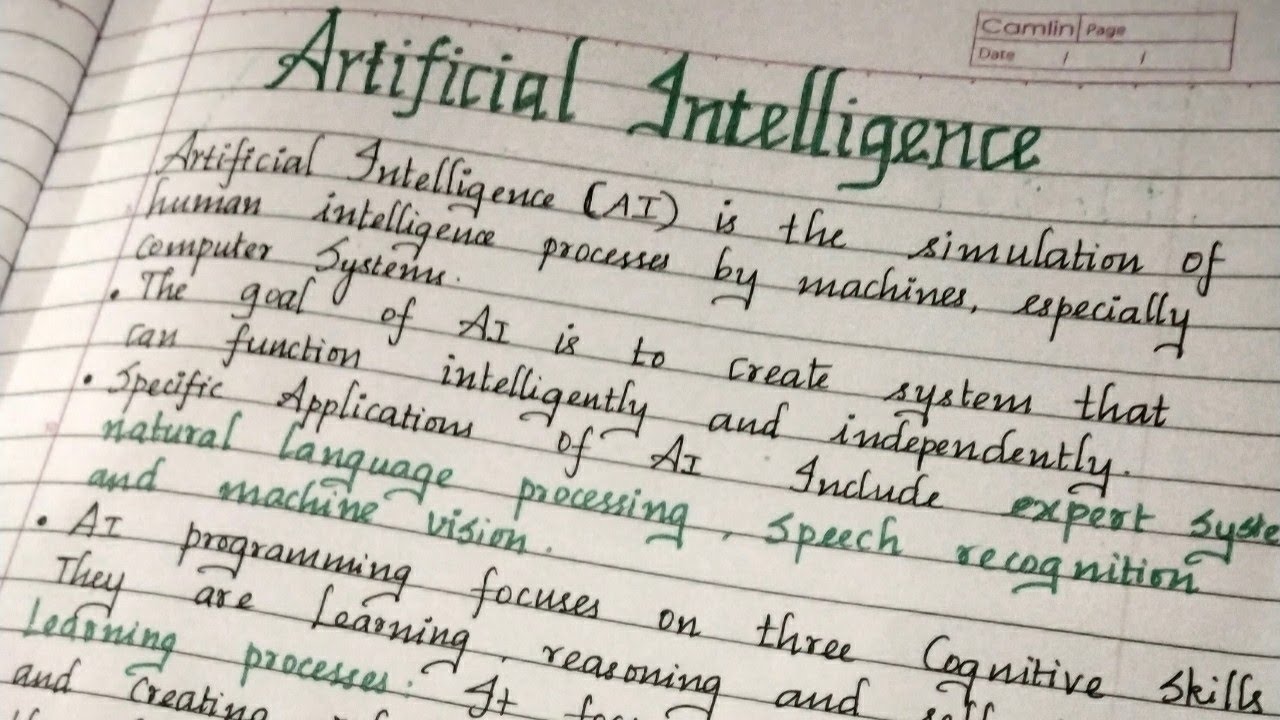 Camlin Page
Date / /
Artificial Intelligence
Artificial Intelligence (AI) is the simulation of
human intelligence processes by machines, especially
computer Systems.
• The goal of AI is to create system that
can function intelligently and independently.
• Specific Applications of AI Include expert Syste
natural language processing, Speech recognition
and machine vision.
• AI programming focuses on three Cognitive Skills
They are Learning, reasoning and
Learning processes: It
and creating